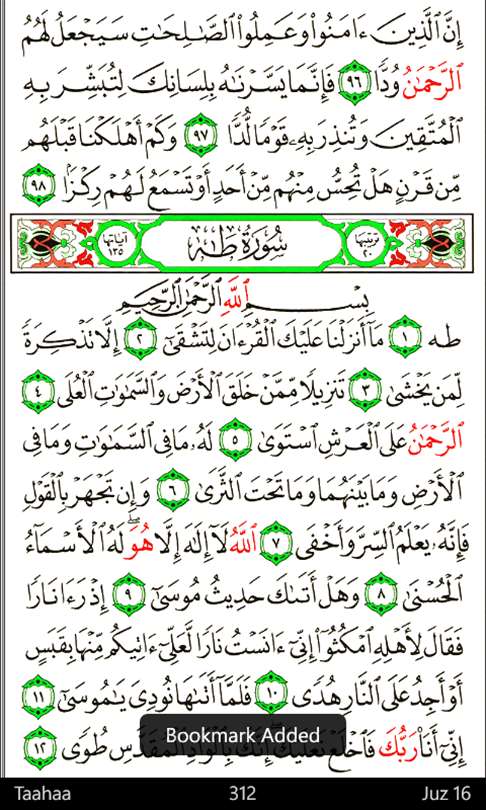 إِنَّ ٱلَّذِينَ ءَامَنُوا۟ وَعَمِلُوا۟ ٱلصَّـٰلِحَـٰتِ سَيَجْعَلُ لَهُمُ
ٱلرَّحْمَـٰنُ وُدًّا ٩٦ فَإِنَّمَا يَسَّرْنَـٰهُ بِلِسَانِكَ لِتُبَشِّرَ بِهِ
ٱلْمُتَّقِينَ وَتُنذِرَ بِهِۦ قَوْمًا لُّدًّا ٩٧ وَكَمْ أَهْلَكْنَا قَبْلَهُم
مِّن قَرْنٍ هَلْ تُحِسُّ مِنْهُم مِّنْ أَحَدٍ أَوْ تَسْمَعُ لَهُمْ رِكْزًۢا ٩٨
ترتيبها ٢٠ سُورَةُ طه آياتها ١٣٥
بِسْمِ ٱللَّهِ ٱلرَّحْمَـٰنِ ٱلرَّحِيمِ
طه ١ مَآ أَنزَلْنَا عَلَيْكَ ٱلْقُرْءَانَ لِتَشْقَىٰٓ ٢ إِلَّا تَذْكِرَةً
لِّمَن يَخْشَىٰ ٣ تَنزِيلًا مِّمَّنْ خَلَقَ ٱلْأَرْضَ وَٱلسَّمَـٰوَٰتِ ٱلْعُلَى ٤
ٱلرَّحْمَـٰنُ عَلَى ٱلْعَرْشِ ٱسْتَوَىٰ ٥ لَهُۥ مَا فِى ٱلسَّمَـٰوَٰتِ وَمَا فِى
ٱلْأَرْضِ وَمَا بَيْنَهُمَا وَمَا تَحْتَ ٱلثَّرَىٰ ٦ وَإِن تَجْهَرْ بِٱلْقَوْلِ
فَإِنَّهُۥ يَعْلَمُ ٱلسِّرَّ وَأَخْفَى ٧ ٱللَّهُ لَآ إِلَـٰهَ إِلَّا هُوَ ۖ لَهُ ٱلْأَسْمَآءُ
ٱلْحُسْنَىٰ ٨ وَهَلْ أَتَىٰكَ حَدِيثُ مُوسَىٰٓ ٩ إِذْ رَءَا نَارًا
فَقَالَ لِأَهْلِهِ ٱمْكُثُوٓا۟ إِنِّىٓ ءَانَسْتُ نَارًا لَّعَلِّىٓ ءَاتِيكُم مِّنْهَا بِقَبَسٍ
أَوْ أَجِدُ عَلَى ٱلنَّارِ هُدًى ١٠ فَلَمَّآ أَتَىٰهَا نُودِىَ يَـٰمُوسَىٰٓ ١١
إِنِّىٓ أَنَا۠ رَبُّكَ فَٱخْلَعْ نَعْلَيْكَ ۖ إِنَّكَ بِٱلْوَادِ ٱلْمُقَدَّسِ طُوًى ١٢
Bookmark Added
Taahaa 312 Juz 16